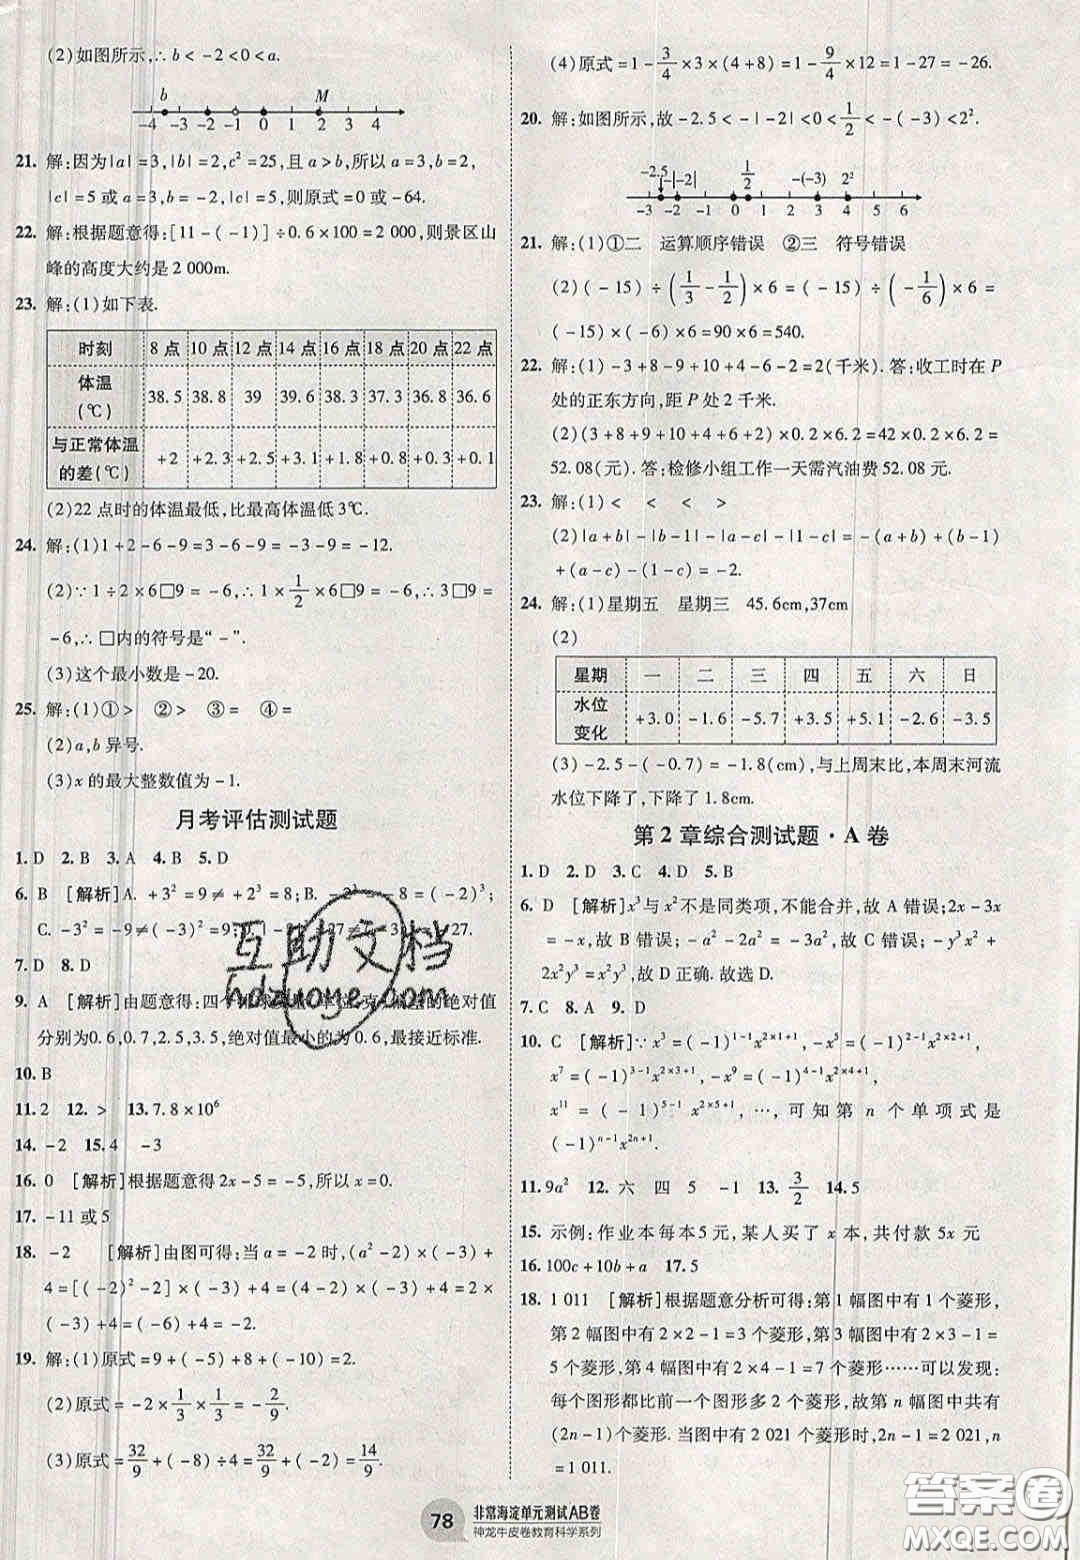 (2)如图所示,∴b<-2<0<a.
b M
-4 -3 -2 -1 0 1 2 3 4
21. 解:因为|a|=3,|b|=2,c²=25,且a>b,所以a=3,b=2,
|c|=5或a=3,b=-2,|c|=5,则原式=0或-64.
22. 解:根据题意得:[11-(-1)]÷0.6×100=2 000,则景区山
峰的高度大约是2 000m.
23. 解:(1)如下表.
时刻 8点 10点 12点 14点 16点 18点 20点 22点
体温(℃) 38.5 38.8 39 39.6 38.3 37.3 36.8 36.6
与正常体温的差(℃) +2 +2.3 +2.5 +3.1 +1.8 +0.8 +0.3 +0.1
(2)22点时的体温最低,比最高体温低3℃.
24. 解:(1)1+2-6-9=3-6-9=-3-9=-12.
(2)∵1÷2×6□9=-6,∴1×1/2×6□9=-6,∴3□9=
-6,∴□内的符号是“-”.
(3)这个最小数是-20.
25. 解:(1)①> ②> ③= ④=
(2)a,b异号.
(3)x的最大整数值为-1.
月考评估测试题
1. D 2. B 3. A 4. B 5. D
6. B [解析]A. +3²=9≠+2³=8;B. -2³=-8=(-2)³;
C. -3²=-9≠(-3)²=9; 27≠ 27.
7. D 8. D
9. A [解析]由题意得:四 的绝对值
分别为0.6,0.7,2.5,3.5,绝对值最小的为0.6,最接近标准.
10. B
11. 2 12. > 13. 7.8×10⁶
14. -2 15. 4 -3
16. 0 [解析]根据题意得2x-5=-5,所以x=0.
17. -11或5
18. -2 [解析]由图可得:当a=-2时,(a²-2)×(-3)+
4=[(-2)²-2]×(-3)+4=(4-2)×(-3)+4=2×
(-3)+4=(-6)+4=-2.
19. 解:(1)原式=9+(-5)+8+(-10)=2.
(2)原式=-2×1/3×1/3=-2/9.
(3)原式=32/9+(-8)÷4=32/9+(-2)=14/9.
(4)原式=1-3/4×3×(4+8)=1-9/4×12=1-27=-26.
20. 解:如图所示,故-2.5<-|-2|<0<1/2<-(-3)<2².
-2.5 -|-2| 1/2 -(-3) 2²
-3 -2 -1 0 1 2 3 4 5 6
21. 解:(1)①二 运算顺序错误 ②三 符号错误
(2)(-15)÷(1/3-1/2)×6=(-15)÷(-1/6)×6=
(-15)×(-6)×6=90×6=540.
22. 解:(1)-3+8-9+10+4-6-2=2(千米).答:收工时在P
处的正东方向,距P处2千米.
(2)(3+8+9+10+4+6+2)×0.2×6.2=42×0.2×6.2=
52.08(元).答:检修小组工作一天需汽油费52.08元.
23. 解:(1)< < < >
(2)|a+b|-|b-1|-|a-c|-|1-c|=-(a+b)+(b-1)
+(a-c)-(1-c)=-2.
24. 解:(1)星期五 星期三 45.6cm,37cm
(2)
星期 一 二 三 四 五 六 日
水位变化 +3.0 -1.6 -5.7 +3.5 +5.1 -2.6 -3.5
(3)-2.5-(-0.7)=-1.8(cm),与上周末比,本周末河流
水位下降了,下降了1.8cm.
第2章综合测试题·A卷
1. D 2. D 3. C 4. D 5. B
6. D [解析]x³与x²不是同类项,不能合并,故A错误;2x-3x
=-x,故B错误;-a²-2a²=-3a²,故C错误;-y³x²+
2x²y³=x²y³,故D正确.故选D.
7. C 8. A 9. D
10. C [解析]∵x³=(-1)¹⁻¹x²ˣ¹⁺¹,-x⁵=(-1)²⁻¹x²ˣ²⁺¹,
x⁷=(-1)³⁻¹x²ˣ³⁺¹,-x⁹=(-1)⁴⁻¹x²ˣ⁴⁺¹,
x¹¹=(-1)⁵⁻¹x²ˣ⁵⁺¹,…,可知第n个单项式是
(-1)ⁿ⁻¹x²ⁿ⁺¹.
11. 9a² 12. 六 四 5 -1 13. 3/2 14. 5
15. 示例:作业本每本5元,某人买了x本,共付款5x元
16. 100c+10b+a 17. 5
18. 1 011 [解析]根据题意分析可得:第1幅图中有1个菱形,
第2幅图中有2×2-1=3个菱形,第3幅图中有2×3-1=
5个菱形,第4幅图中有2×4-1=7个菱形……可以发现:
每个图形都比前一个图形多2个菱形,故第n幅图中共有
(2n-1)个菱形.当一幅图中有2 021个菱形时,2n-1=2 021,n
=1 011.
78
非常海淀单元测试AB卷
神龙牛皮卷教育科学系列
互助文档
hdzuoye.com
答案圈
MXQE.COM